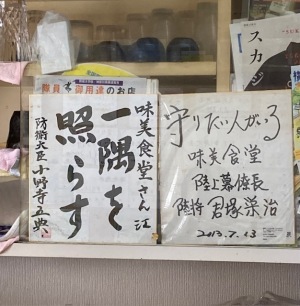 隊員
御用達のお店
スカ
味美食堂さん江
一隅を
照らす
防衛大臣 小野寺五典
守りたい人がいる
味美食堂
陸上幕僚長
陸将 君塚栄治
2013.7.13